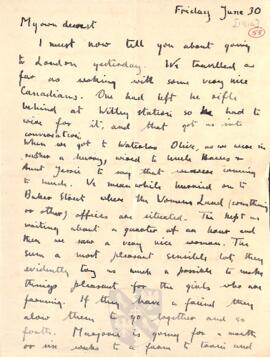 Friday June 30
[1916]
55
My own dearest
I must now tell you about going
to London yesterday. We travelled as
far as woking with some very nice
Canadians. One had left his rifle
behind at Witley station so he had to
wire for it, and that got us into
conversation.
When we got to Waterloo Olive, as we were in
rather a hurry, wired to Uncle Harris &
Aunt Jessie to say that we were coming
to lunch. We meanwhile hurried on to
Baker Street where the Womens Land (something
or other) offices are situated. They kept us
waiting about a quarter of an hour and
then we saw a very nice woman. They
seem a most pleasant sensible lot they
evidently try as much a possible to make
things pleasant for the girls who are
farming. If they have a friend they
alow them to go together and so
forth. Margaret is going for a month
or six weeks to a farm to train and